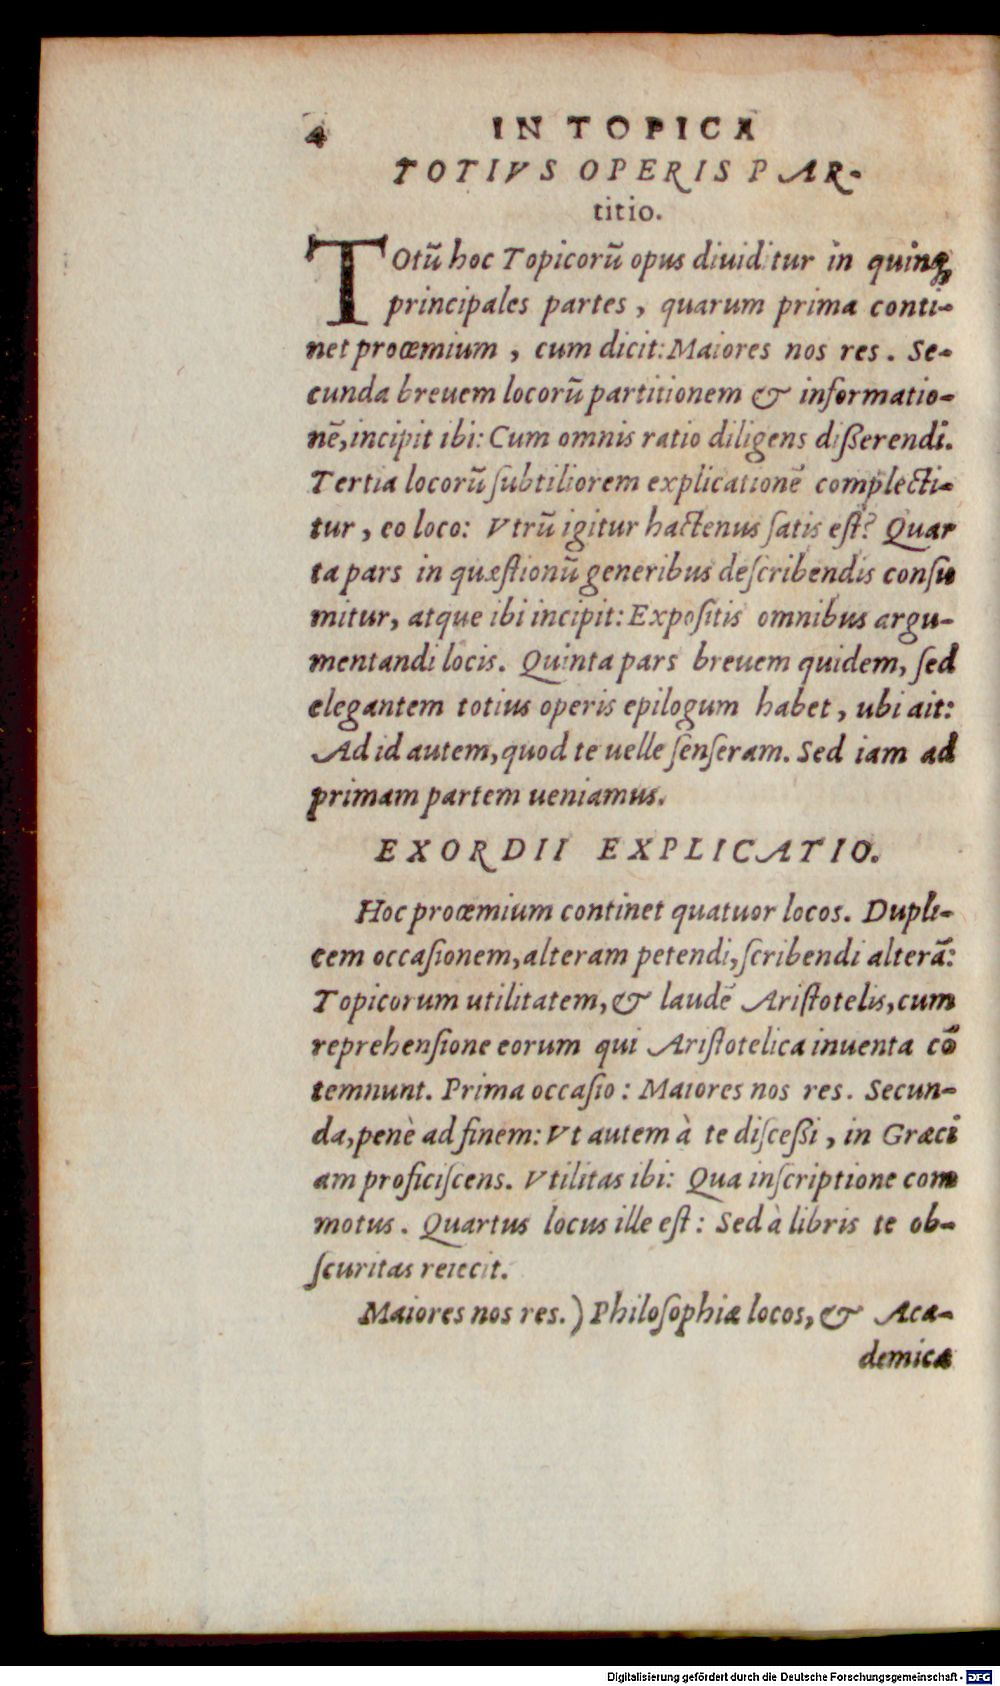 4 IN TOPICA
TOTIVS OPERIS PAR-
titio.
TOtũ hoc Topicorũ opus diuiditur in quinqꝫ
principales partes, quarum prima conti-
net prooemium, cum dicit: Maiores nos res. Se-
cunda breuem locorũ partitionem & informatio-
nẽ, incipit ibi: Cum omnis ratio diligens dißerendi.
Tertia locorũ ſubtiliorem explicationẽ complecti-
tur, eo loco: Vtrũ igitur hactenus ſatis eſt? Quar
ta pars in quæſtionũ generibus deſcribendis conſu
mitur, atque ibi incipit: Expoſitis omnibus argu-
mentandi locis. Quinta pars breuem quidem, ſed
elegantem totius operis epilogum habet, ubi ait:
Ad id autem, quod te uelle ſenſeram. Sed iam ad
primam partem ueniamus.
EXORDII EXPLICATIO.
Hoc prooemium continet quatuor locos. Dupli-
cem occaſionem, alteram petendi, ſcribendi alterã:
Topicorum utilitatem, & laudẽ Ariſtotelis, cum
reprehenſione eorum qui Ariſtotelica inuenta cõ
temnunt. Prima occaſio: Maiores nos res. Secun-
da, penè ad finem: Vt autem à te diſceßi, in Græci
am proficiſcens. Vtilitas ibi: Qua inſcriptione com
motus. Quartus locus ille eſt: Sed à libris te ob-
ſcuritas reiecit.
Maiores nos res.) Philoſophiæ locos, & Aca-
demicæ
Digitalisierung gefördert durch die Deutsche Forschungsgemeinschaft - DFG